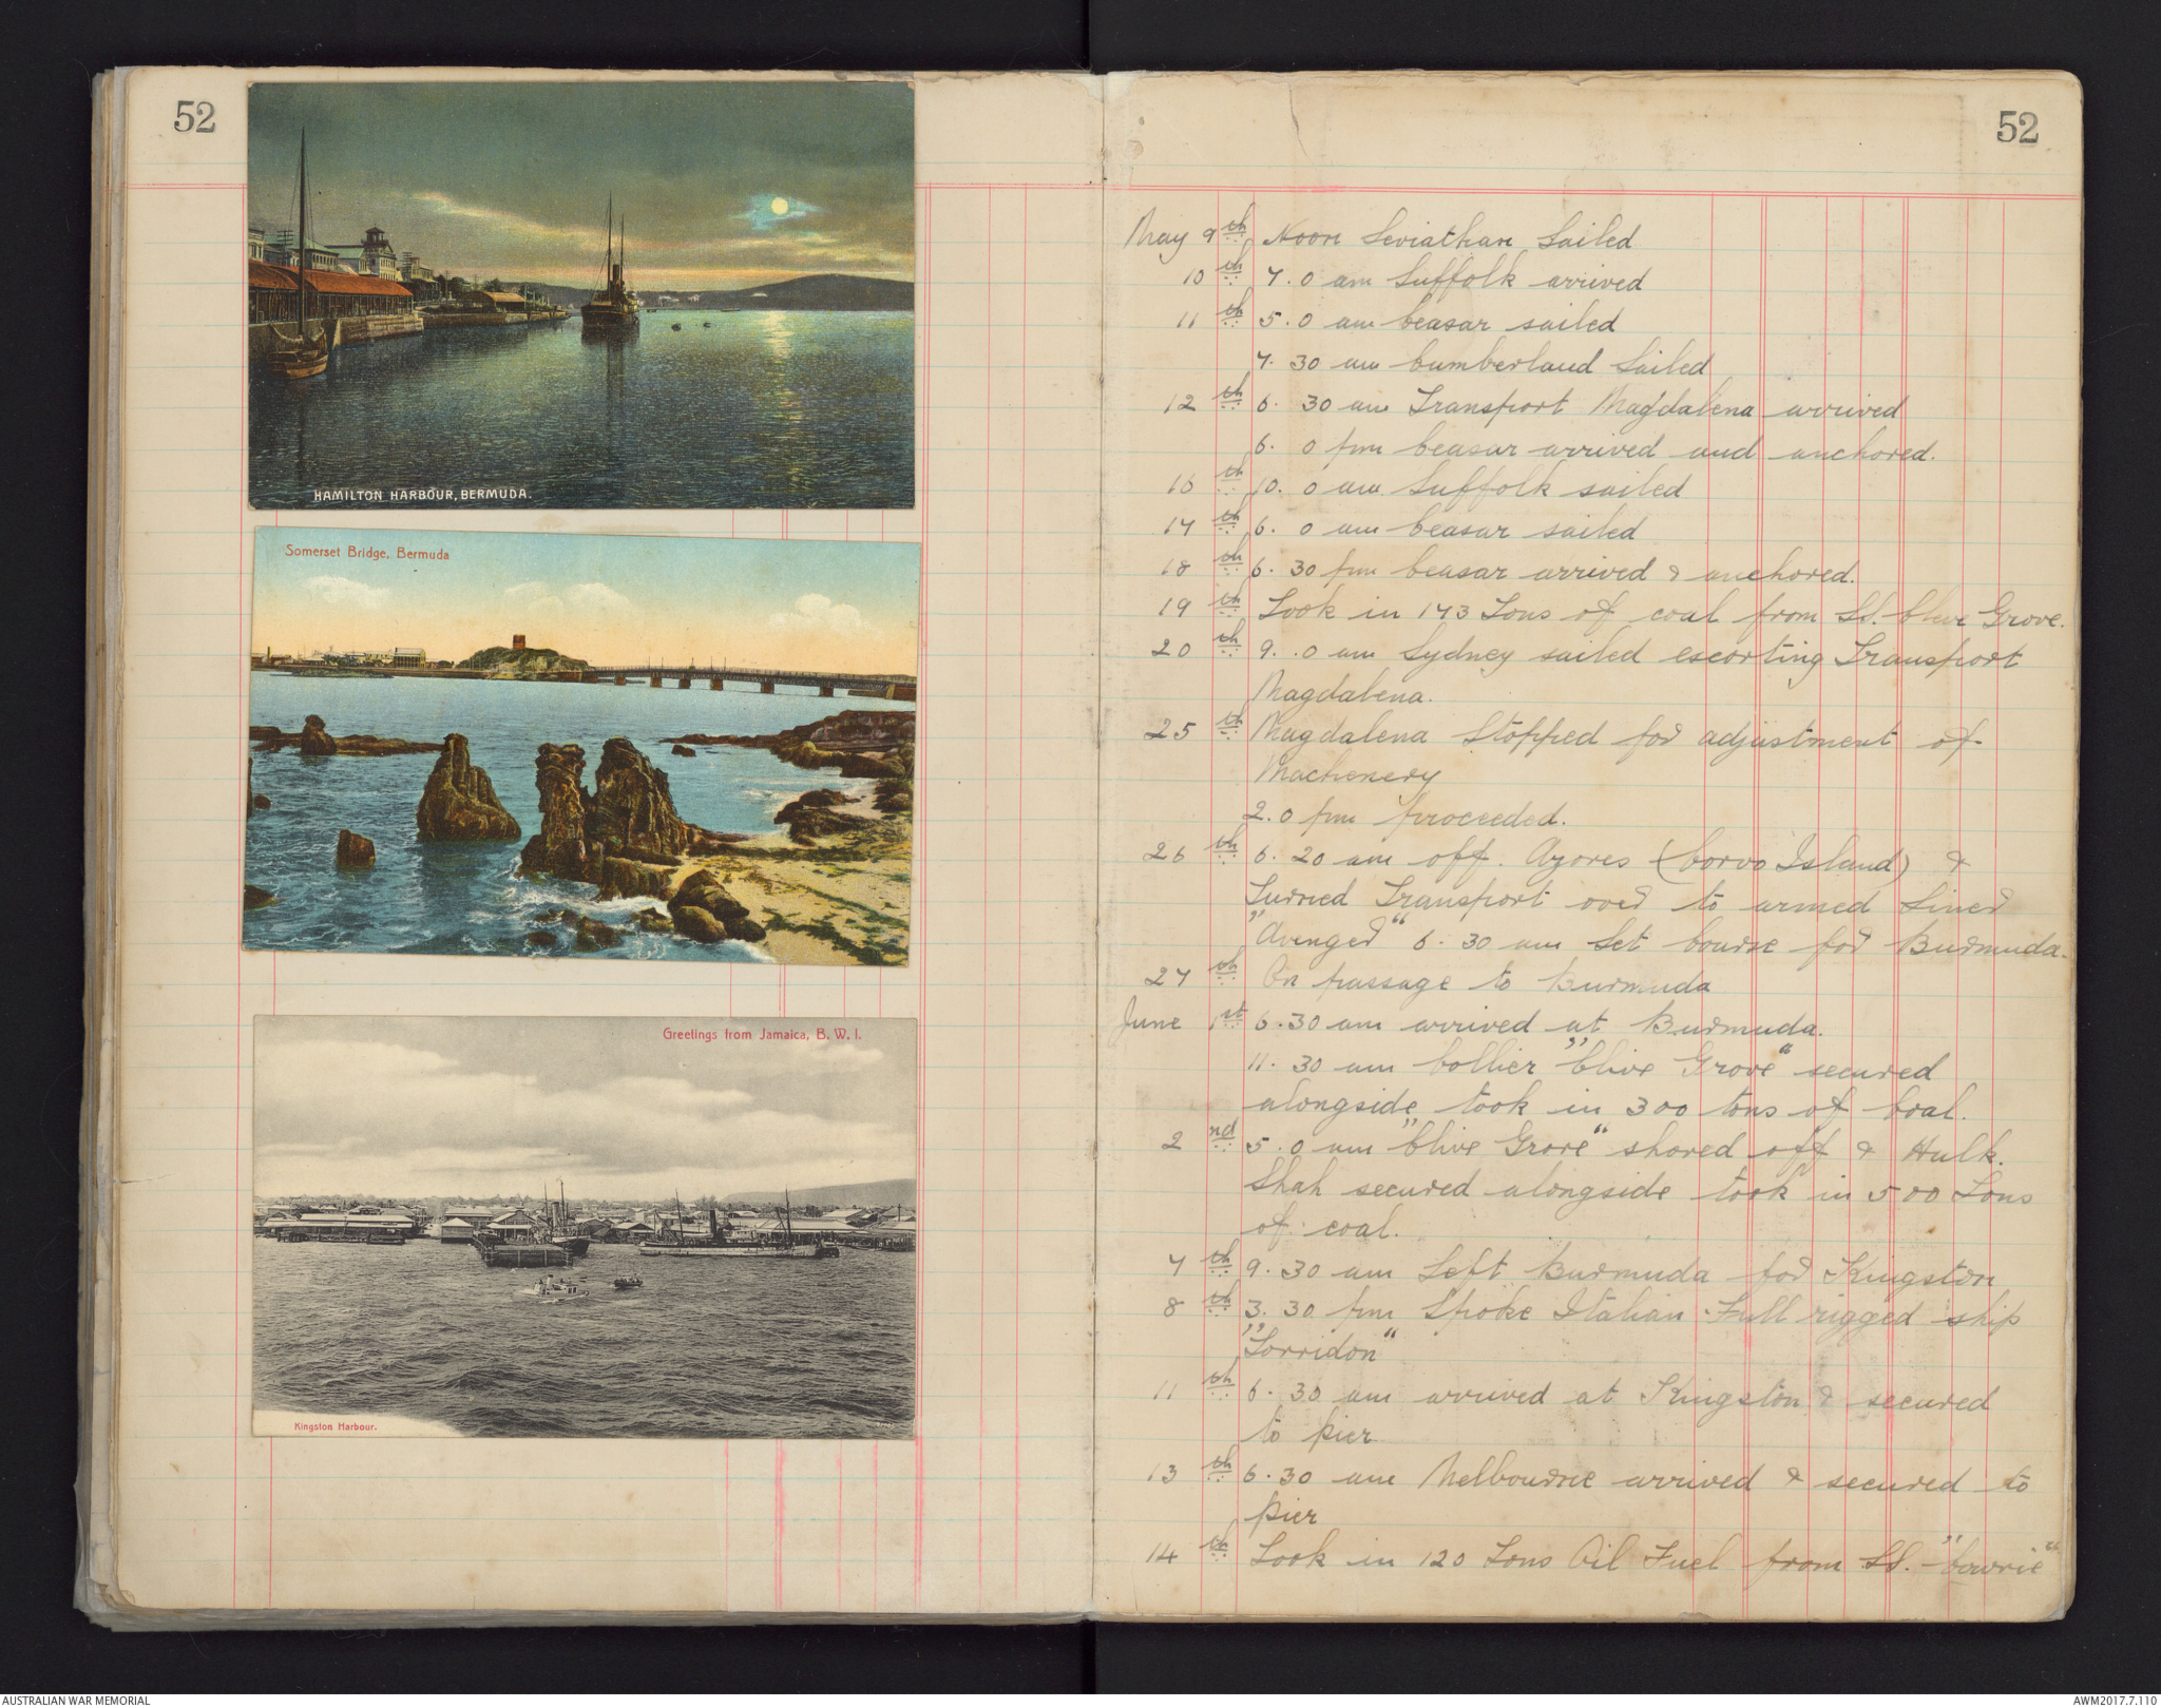 52
HAMILTON HARBOUR, BERMUDA.
Somerset Bridge, Bermuda
Greetings from Jamaica, B. W. I.
Kingston Harbour.
52
May 9th Noon Leviathan Sailed
10th 7.0 am Suffolk arrived
11th 5.0 am Ceasar sailed
7.30 am Cumberland Sailed
12th 6.30 am Transport Magdalena arrived
6.0 pm Ceasar arrived and anchored.
16th 10.0 am Suffolk sailed
17th 6.0 am Ceasar sailed
18th 6.30 pm Ceasar arrived & anchored.
19th Took in 143 Tons of coal from SS. Clive Grove.
20th 9.0 am Sydney sailed escorting Transport
Magdalena.
25th Magdalena Stopped for adjustment of
Machenery
2.0 pm proceeded.
26th 6.20 am off. Azores (Corvo Island) &
Turned Transport over to armed Liner
"Avenger" 6.30 am Set Course for Burmuda.
27th On passage to Burmuda
June 1st 6.30 am arrived at Burmuda.
11.30 am Collier "Clive Grove" secured
alongside took in 300 tons of Coal.
2nd 5.0 am "Clive Grove" shoved off & Hulk.
Shah secured alongside took in 500 Tons
of coal.
7th 9.30 am Left Burmuda for Kingston
8th 3.30 pm Spoke Italian Full rigged ship
"Torridon"
11th 6.30 am arrived at Kingston & secured
to pier
13th 6.30 am Melbourne arrived & secured to
pier
14th Took in 120 Tons Oil Fuel from SS. "Cowrie"
AUSTRALIAN WAR MEMORIAL
AWM2017.7.110